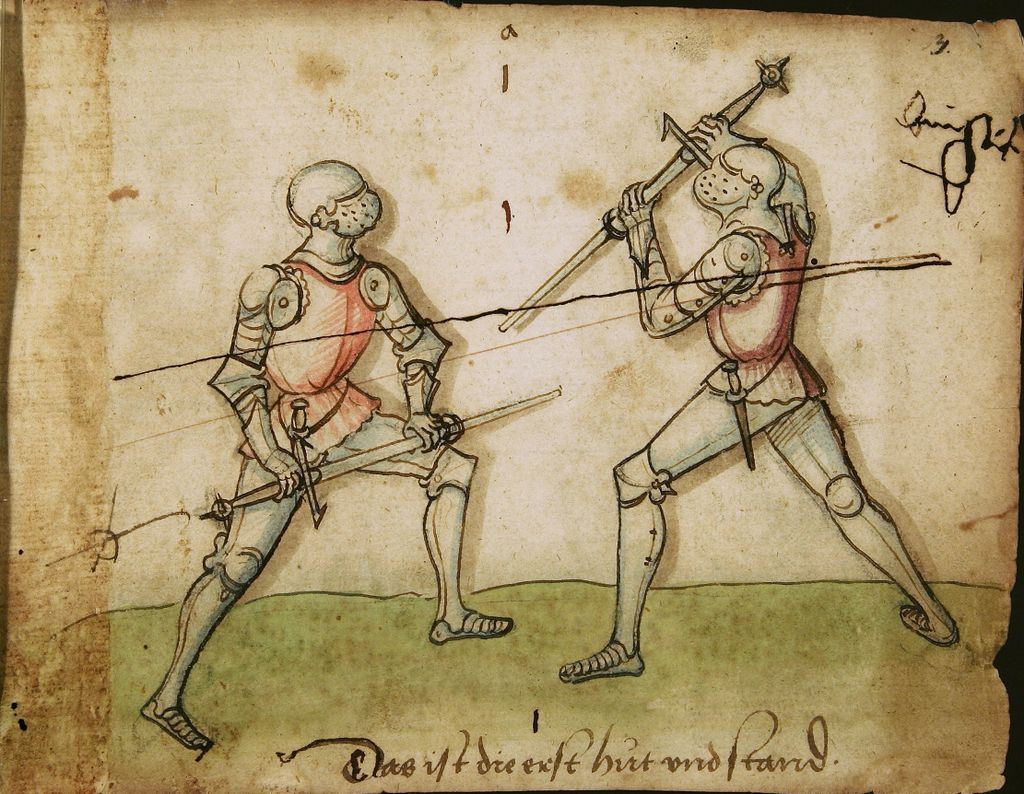 a
3.
Das ist die erst hut vnd stand.